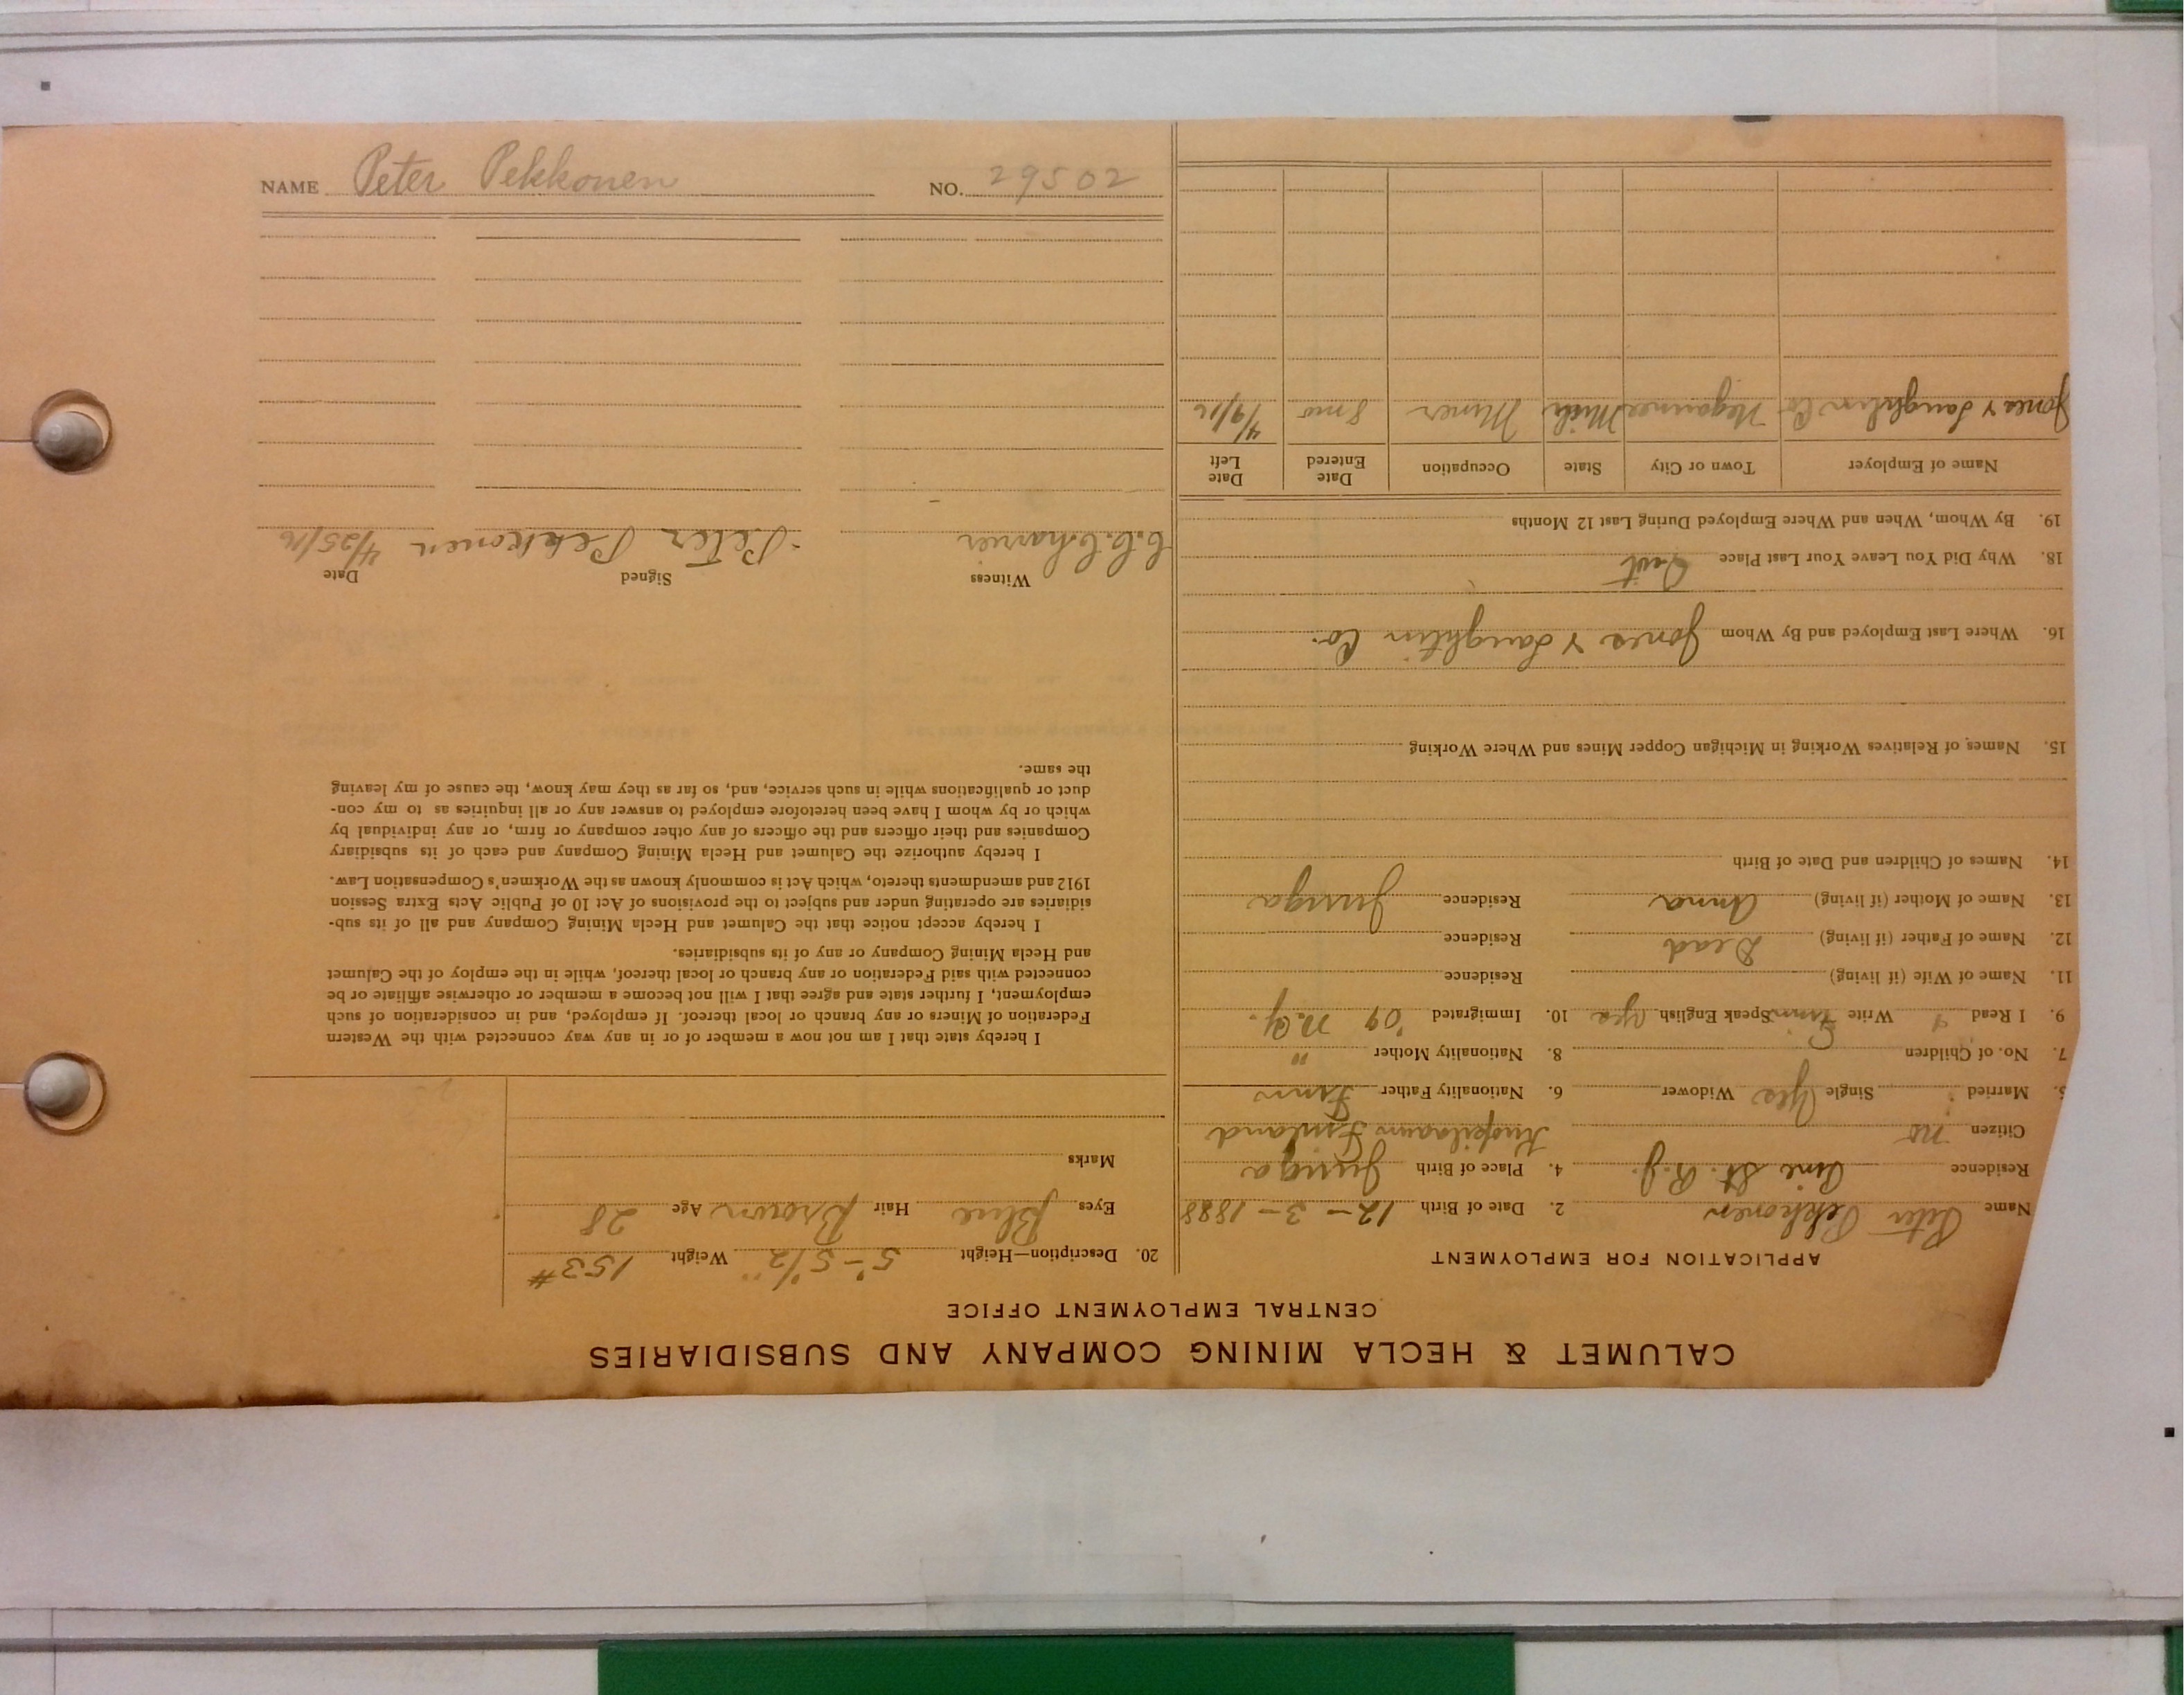 CALUMET & HECLA MINING COMPANY AND SUBSIDIARIES
CENTRAL EMPLOYMENT OFFICE
APPLICATION FOR EMPLOYMENT
Name Peter Pekkonen 2. Date of Birth 12-3-1888
Residence Pine St. R.J. 4. Place of Birth Juuga
Citizen no Kuopilaani Finland
5. Married Single Yes Widower 6. Nationality Father Finn
7. No. of Children 8. Nationality Mother "
9. I Read Write Finn Speak English yes 10. Immigrated '09 N.Y.
11. Name of Wife (if living) Residence
12. Name of Father (if living) Dead Residence
13. Name of Mother (if living) Anna Residence Juuga
14. Names of Children and Date of Birth
15. Names of Relatives Working in Michigan Copper Mines and Where Working
16. Where Last Employed and By Whom Jones & Laughlin Co.
18. Why Did You Leave Your Last Place Quit
19. By Whom, When and Where Employed During Last 12 Months
Name of Employer Town or City State Occupation Date Entered Date Left
Jones & Laughlin Co Negaunee Mich Miner 8 mo 4/9/16
20. Description—Height 5'-5 1/2" Weight 153#
Eyes Blue Hair Brown Age 28
Marks
I hereby state that I am not now a member of or in any way connected with the Western
Federation of Miners or any branch or local thereof. If employed, and in consideration of such
employment, I further state and agree that I will not become a member or otherwise affiliate or be
connected with said Federation or any branch or local thereof, while in the employ of the Calumet
and Hecla Mining Company or any of its subsidiaries.
I hereby accept notice that the Calumet and Hecla Mining Company and all of its sub-
sidiaries are operating under and subject to the provisions of Act 10 of Public Acts Extra Session
1912 and amendments thereto, which Act is commonly known as the Workmen's Compensation Law.
I hereby authorize the Calumet and Hecla Mining Company and each of its subsidiary
Companies and their officers and the officers of any other company or firm, or any individual by
which or by whom I have been heretofore employed to answer any or all inquiries as to my con-
duct or qualifications while in such service, and, so far as they may know, the cause of my leaving
the same.
Witness Signed Date
C.C. Charrier Peter Pekkonen 4/25/16
NAME Peter Pekkonen NO. 29502